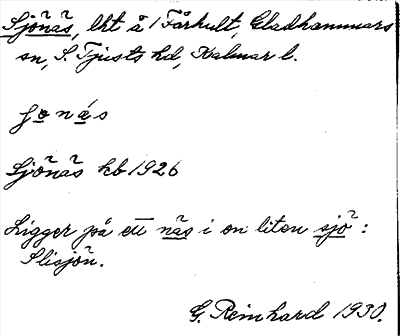 Sjönäs, lht å 1 Fårhult, Gladhammars
sn, S. Tjusts hd, Kalmar l.
Sjönäs kb 1926
Ligger på ett näs i en liten sjö:
Slisjön.
G. Reinhard 1930.